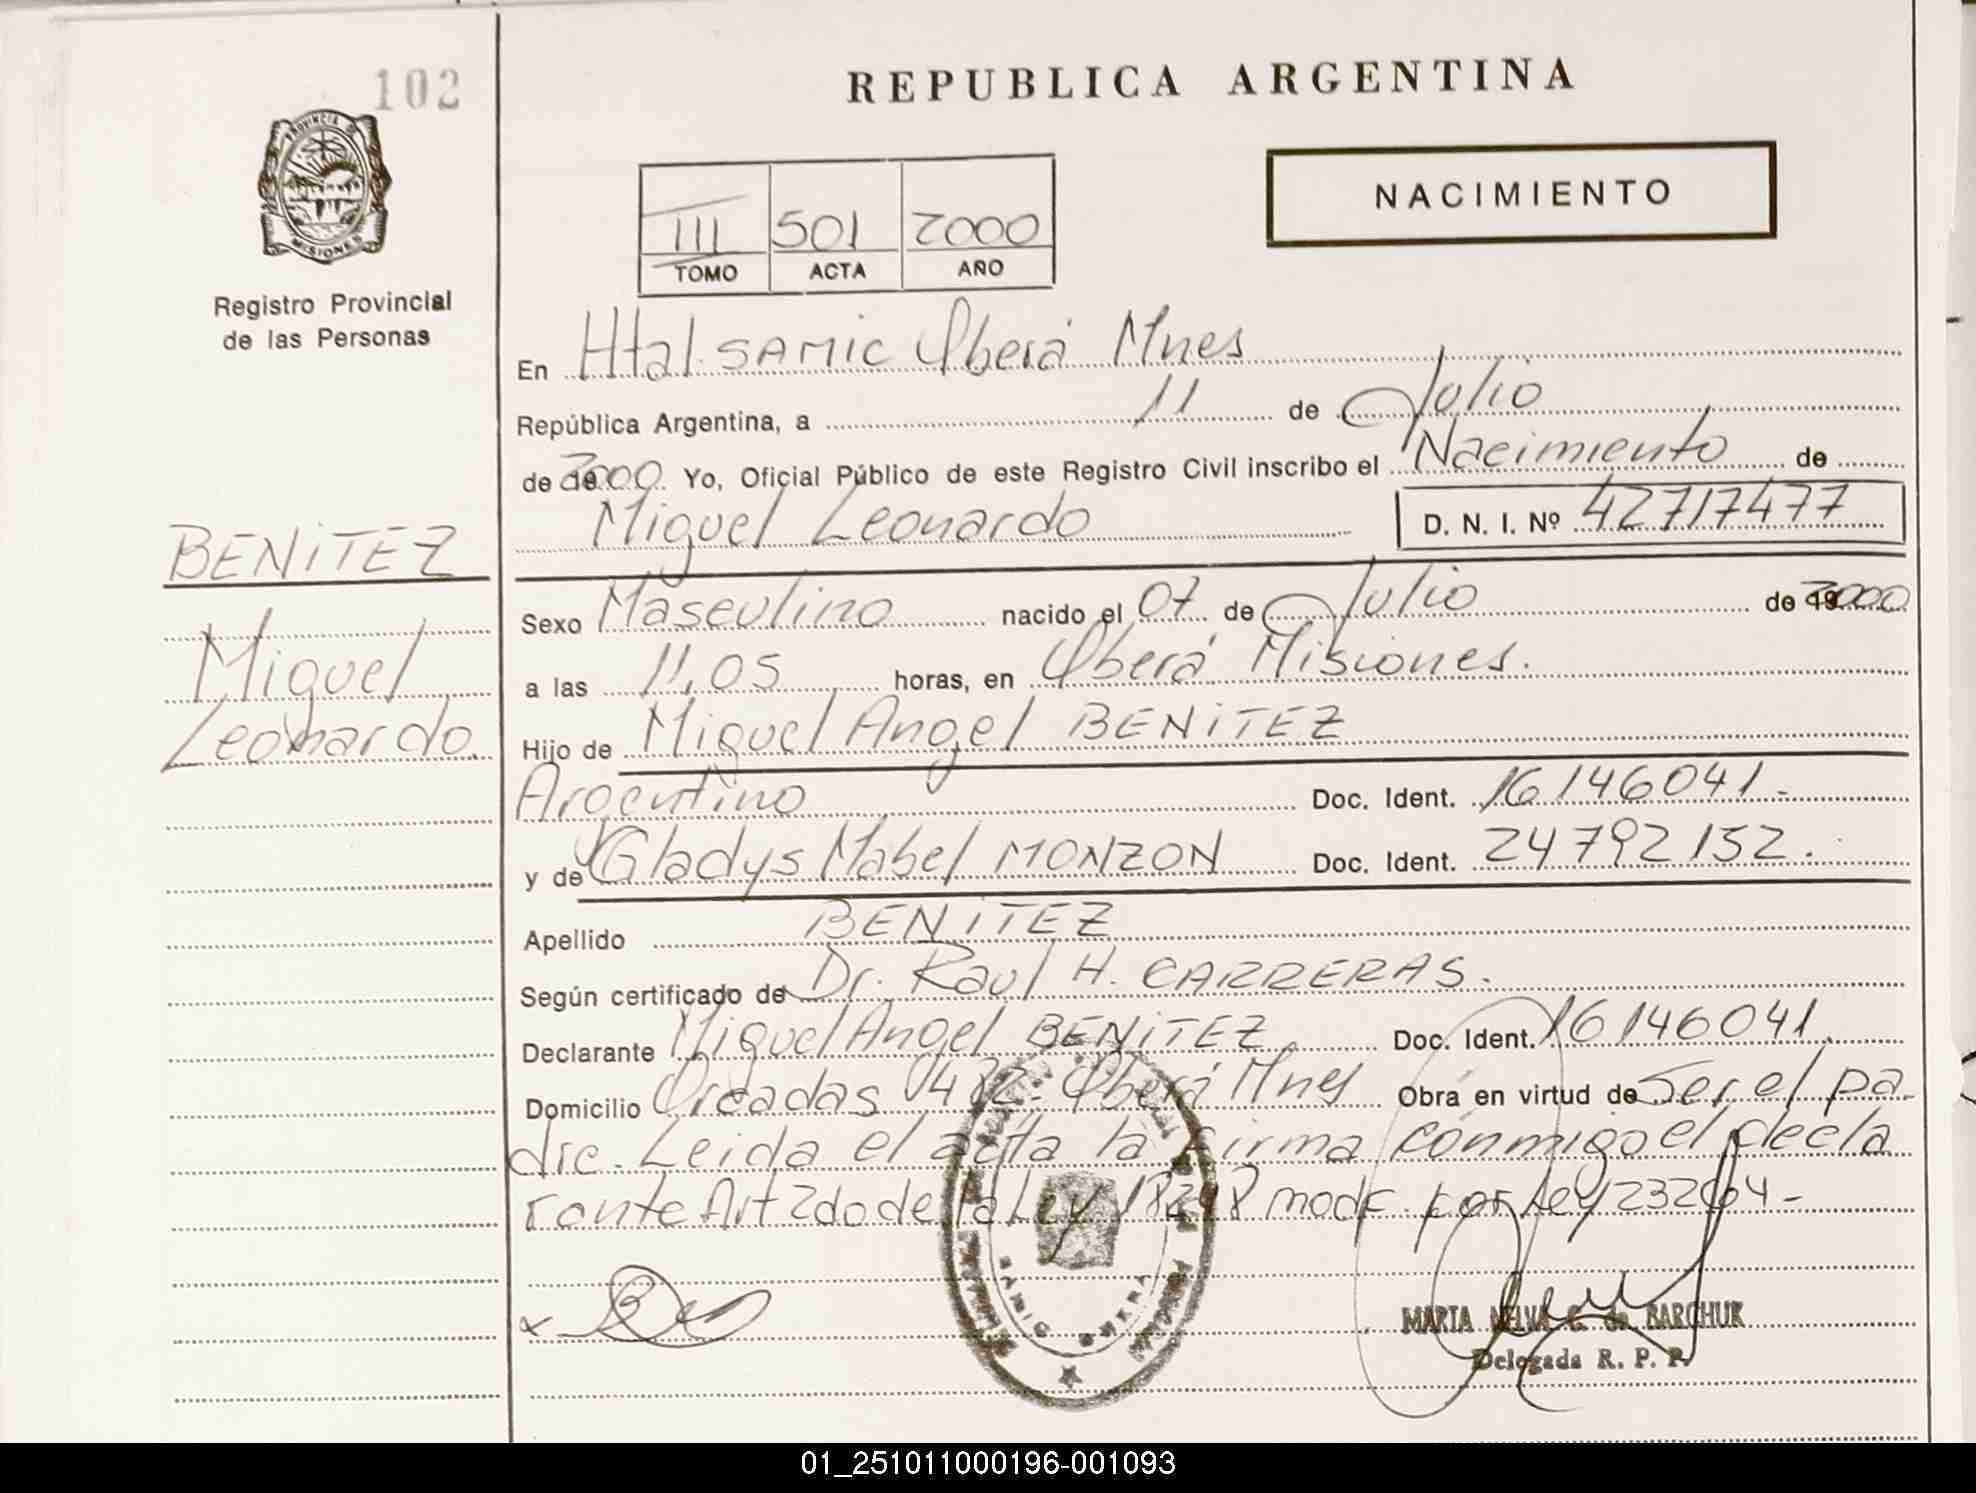 102
REPUBLICA ARGENTINA
NACIMIENTO
PROVINCIA DE
MISIONES
Registro Provincial
de las Personas
III 501 2000
TOMO ACTA AÑO
En Htal. SAMIC Oberá Mnes
República Argentina, a 11 de Julio
de 2000 Yo, Oficial Público de este Registro Civil inscribo el Nacimiento de
Miguel Leonardo D. N. I. Nº 42717477
BENITEZ
Miguel
Leonardo.
Sexo Masculino nacido el 07 de Julio de 2000
a las 11,05 horas, en Oberá Misiones.
Hijo de Miguel Angel BENITEZ
Argentino Doc. Ident. 16146041.-
y de Gladys Mabel MONZON Doc. Ident. 24792152.
Apellido BENITEZ
Según certificado de Dr. Raul H. CARRERAS.
Declarante Miguel Angel BENITEZ Doc. Ident. 16146041.
Domicilio Oberá Mnes Obra en virtud de Ser el pa-
dre. Leida el acta la firma conmigo el decla
rante Art 2do de la Ley 18248 modf. por Ley
SAMIC OBERA
MARTA NELVA G. de BARCHUK
Delegada R. P. P.
01_251011000196-001093